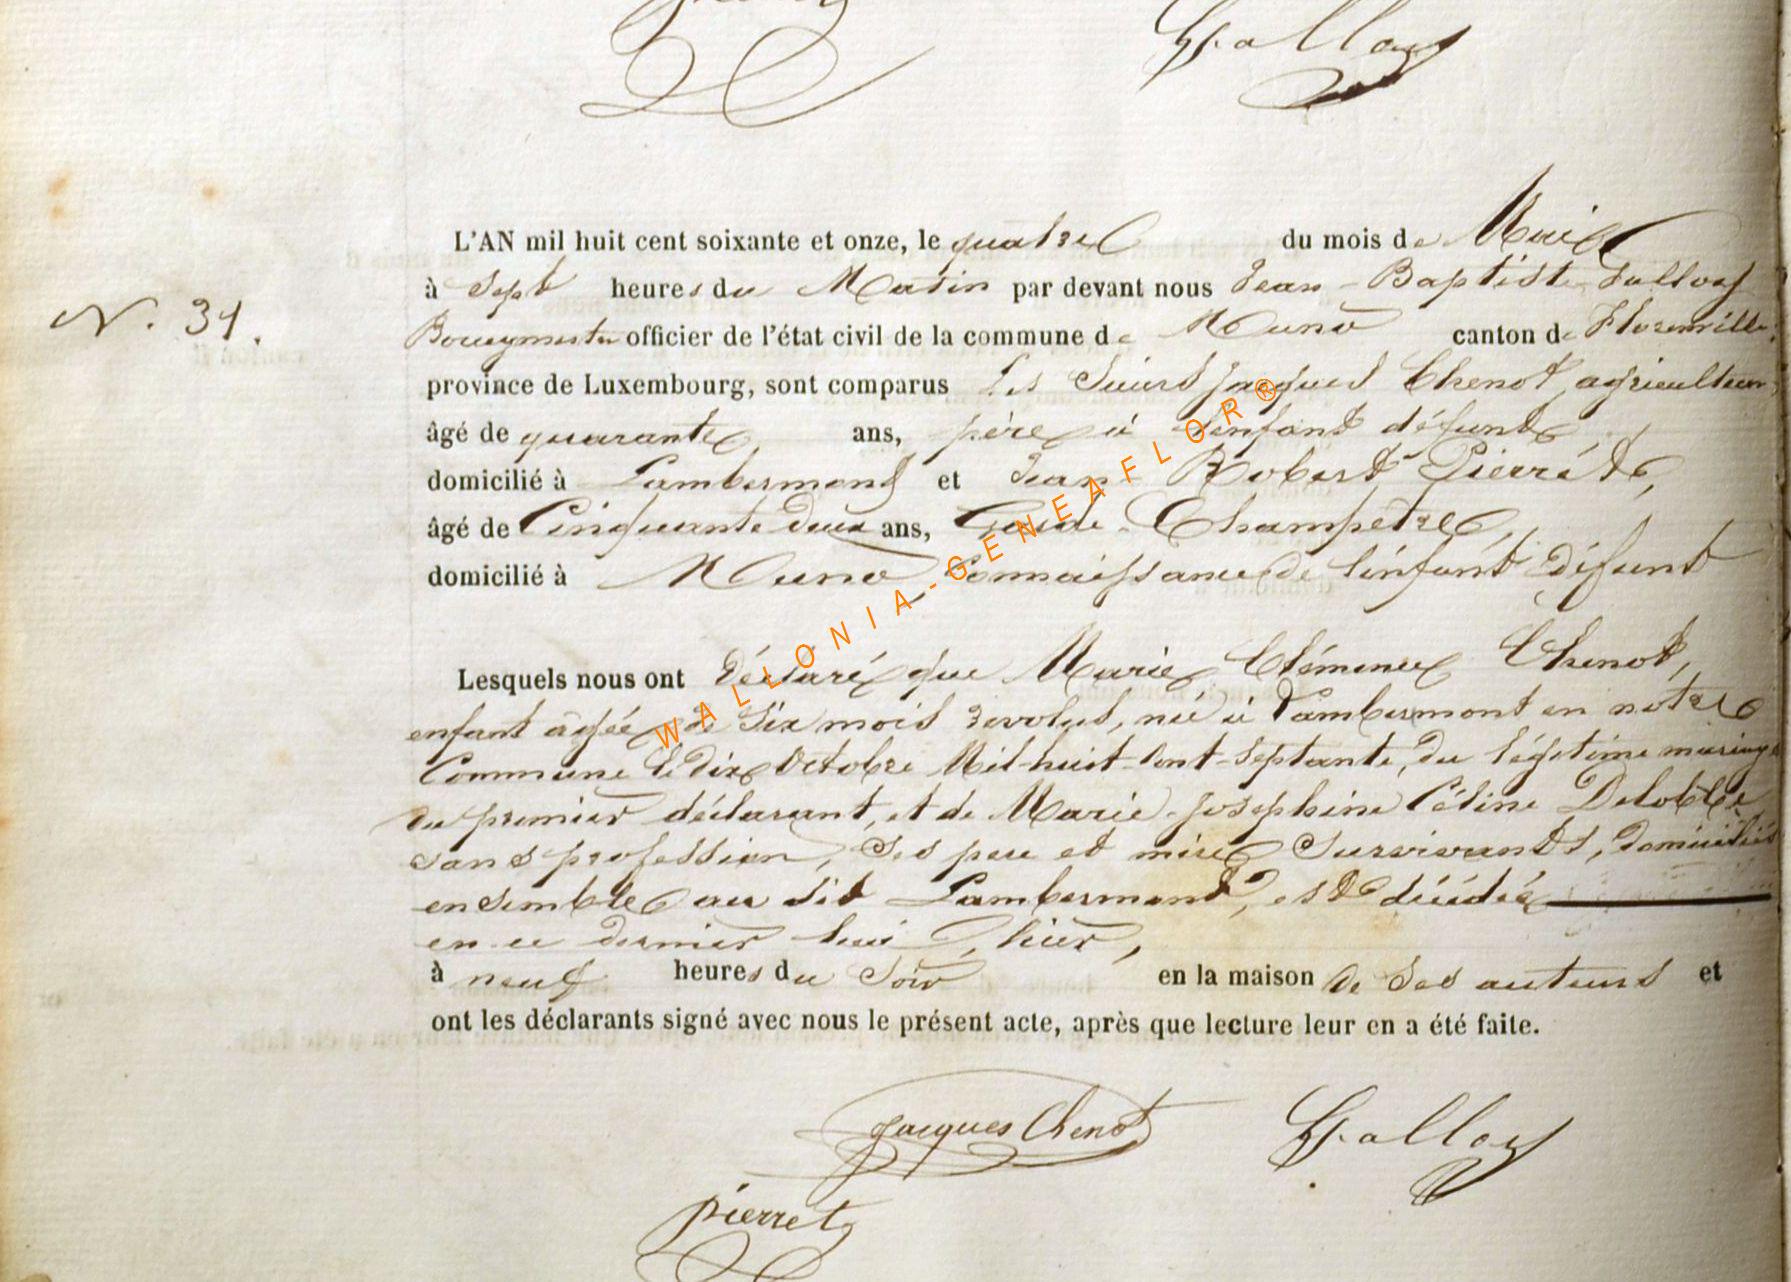 L'AN mil huit cent soixante et onze, le quatre du mois de Mai
à Sept heures du Matin par devant nous Jean-Baptiste Lallou
N. 31. Bourgmestre officier de l'état civil de la commune de Muno canton de Florenville
province de Luxembourg, sont comparus Les Sieurs Jacques Chenot, agriculteur
âgé de quarante ans, père à l'enfant défunt,
domicilié à Lambermont et Jean-Robert Pierrét,
âgé de Cinquante deux ans, Garde-Champêtre,
domicilié à Muno, Connaissance de l'enfant Défunt
Lesquels nous ont Déclaré que Marie Clémence Chenot,
enfant âgée de Six mois révolus, née à Lambermont en notre
Commune le dix Octobre Mil-huit-Cent-Septante, du légitime mariage
du premier déclarant, et de Marie-Josephine Céline Delobbe,
sans profession, Ses père et mère Survivants, domiciliés
ensemble au dit Lambermont, est décédée
en ce dernier lieu, hier,
à neuf heures du Soir en la maison de Ses auteurs et
ont les déclarants signé avec nous le présent acte, après que lecture leur en a été faite.
Jacques Chenot
Pierret
WALLONIA-GENEAFLOR®